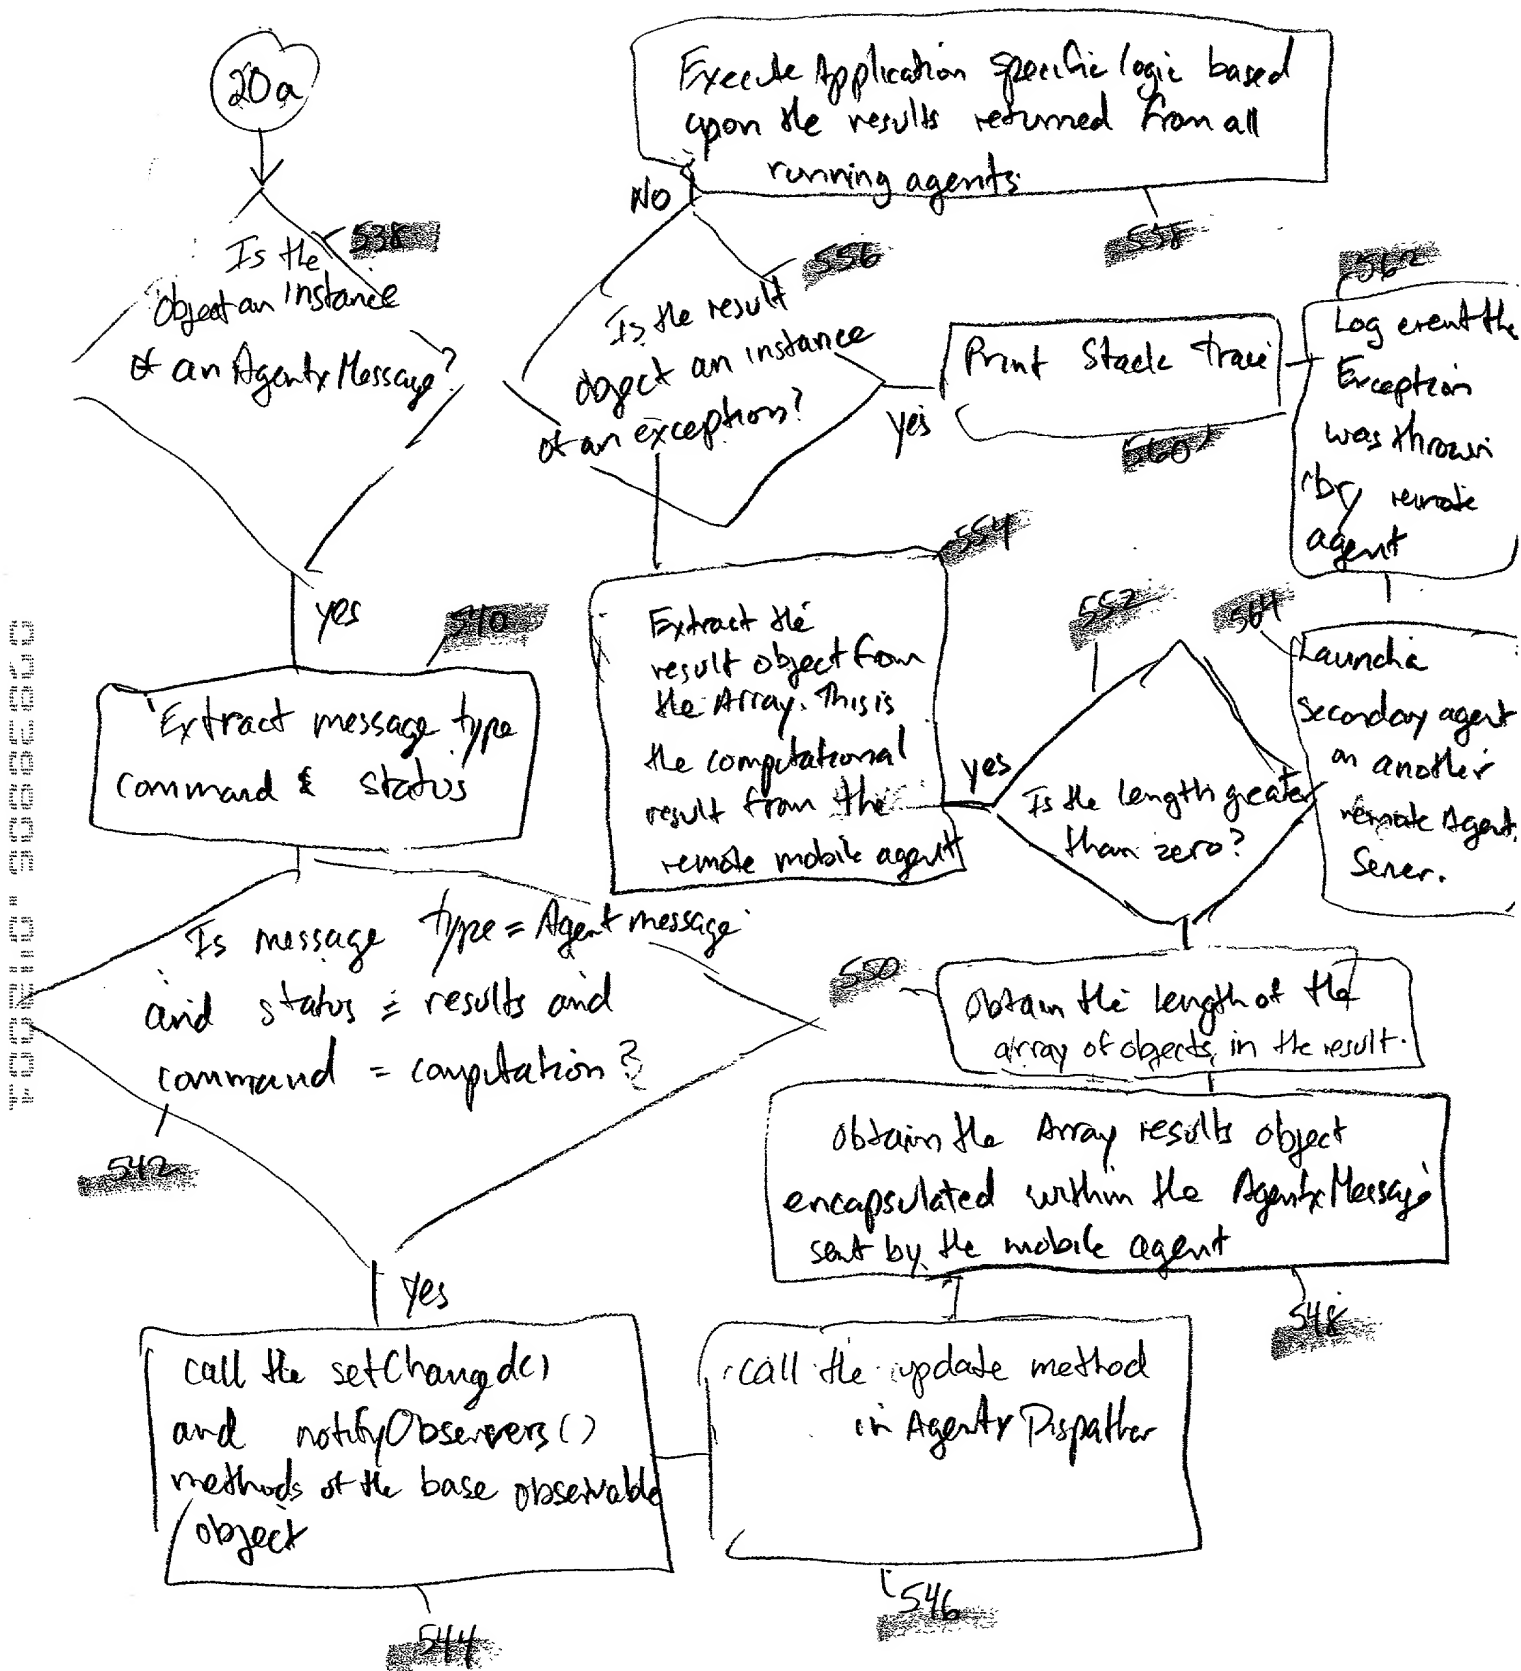 20a
538
Is the
Object an instance
of an AgentxMessage?
yes
540
Extract message type
command & status
Is message type = Agent message
and status = results and
command = computation?
542
yes
call the setChanged()
and notifyObservers()
methods of the base observable
object
544
call the update method
in AgentxDispather
546
Obtain the Array results object
encapsulated within the AgentxMessage
sent by the mobile agent
548
550
Obtain the length of the
array of objects in the result.
552
Is the length greater
than zero?
yes
554
Extract the
result object from
the Array. This is
the computational
result from the
remote mobile agent
556
Is the result
object an instance
of an exception?
No
Execute Application specific logic based
upon the results returned from all
running agents.
558
yes
Print Stack trace
560
562
Log event the
Exception
was thrown
by remote
agent
564
Launch a
Secondary agent
on another
remote Agent
Server.